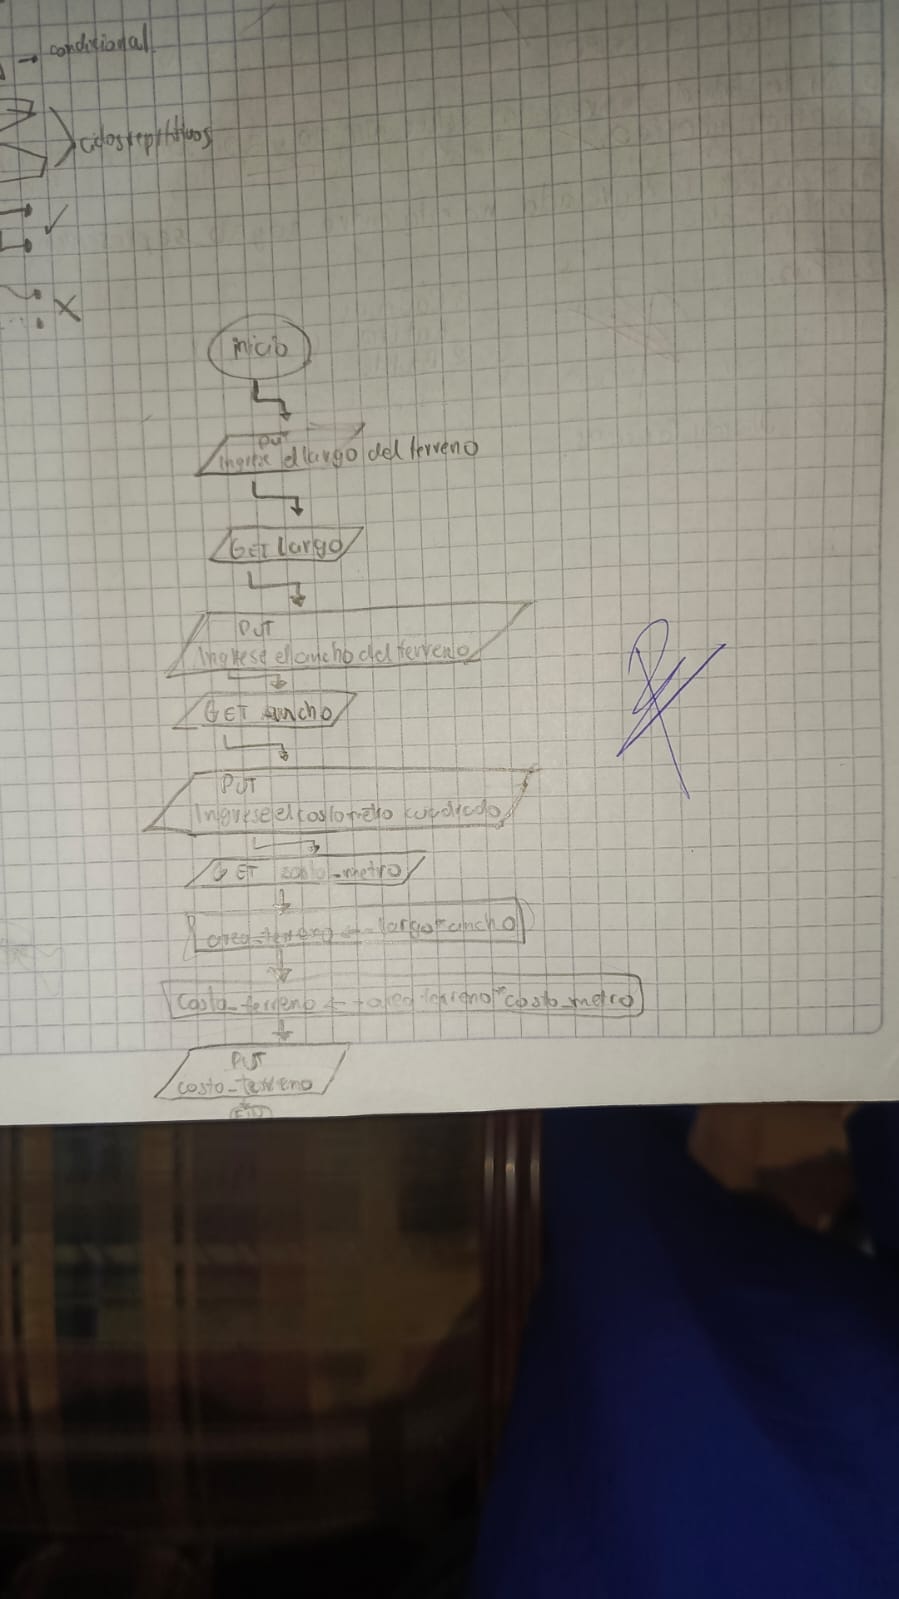 condicional
ciclos repititivos
inicio
PUT
Ingrese el largo del terreno
GET largo
PUT
Ingrese el ancho del terreno
GET ancho
PUT
Ingrese el costo metro cuadrado
GET costo_metro
area_terreno ← largo * ancho
costo_terreno ← area_terreno * costo_metro
PUT
costo_terreno